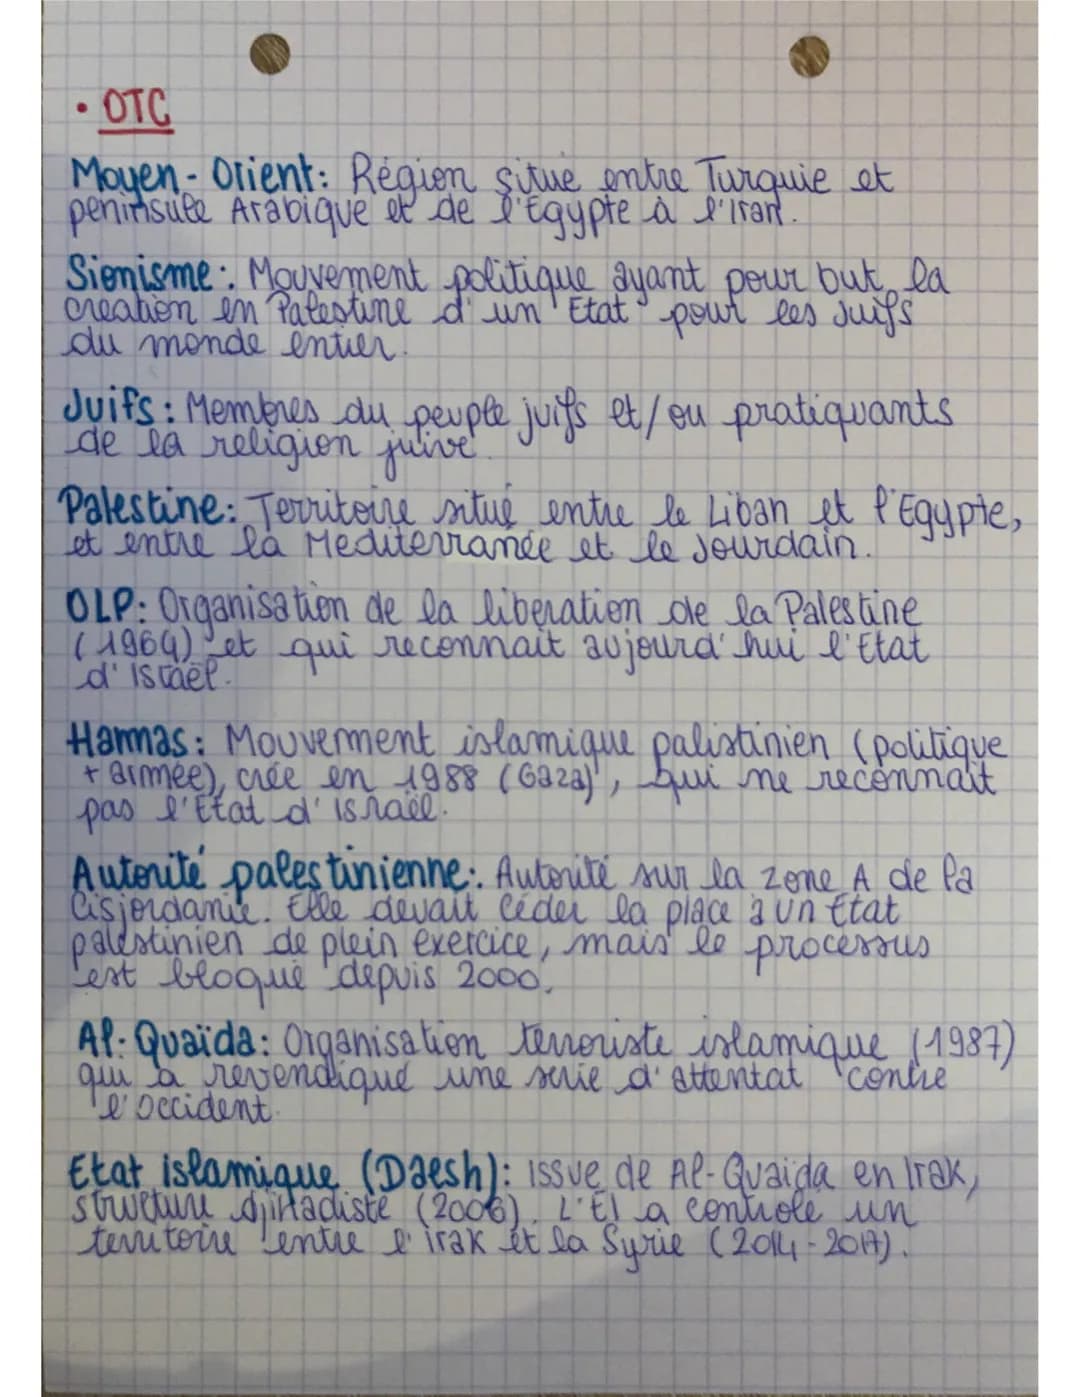 • OTC
Moyen-Orient: Région situé entre Turquie et
peninsule Arabique et de l'Egypte à l'Iran.
Sionisme: Mouvement politique ayant pour but la
creation en Palestine d'un "Etat" pour les Juifs
du monde entier.
Juifs: Membres du peuple juifs et/ou pratiquants
de la religion juive.
Palestine: Territoire situé entre le Liban et l'Egypte,
et entre la Mediterranée et le Jourdain.
OLP: Organisation de la liberation de la Palestine
(1964) et qui reconnait aujourd'hui l'Etat
d'Israël.
Hammas: Mouvement islamique palistinien (politique
+ armée), crée en 1988 (Gaza), qui ne reconnait
pas l'Etat d'Israël.
Autorité palestinienne: Autorité sur la zone A de la
Cisjordanie. Elle devait céder la place à un Etat
palestinien de plein exercice, mais le processus
est bloqué depuis 2000.
Al-Quaïda: Organisation terroriste islamique (1987)
qui a revendiqué une serie d'attentat contre
l'occident.
Etat islamique (Daesh): Issue de Al-Quaida en Irak,
structure djihadiste (2006). L'EI a controlé un
territoire entre l'irak et la Syrie (2014-2017).